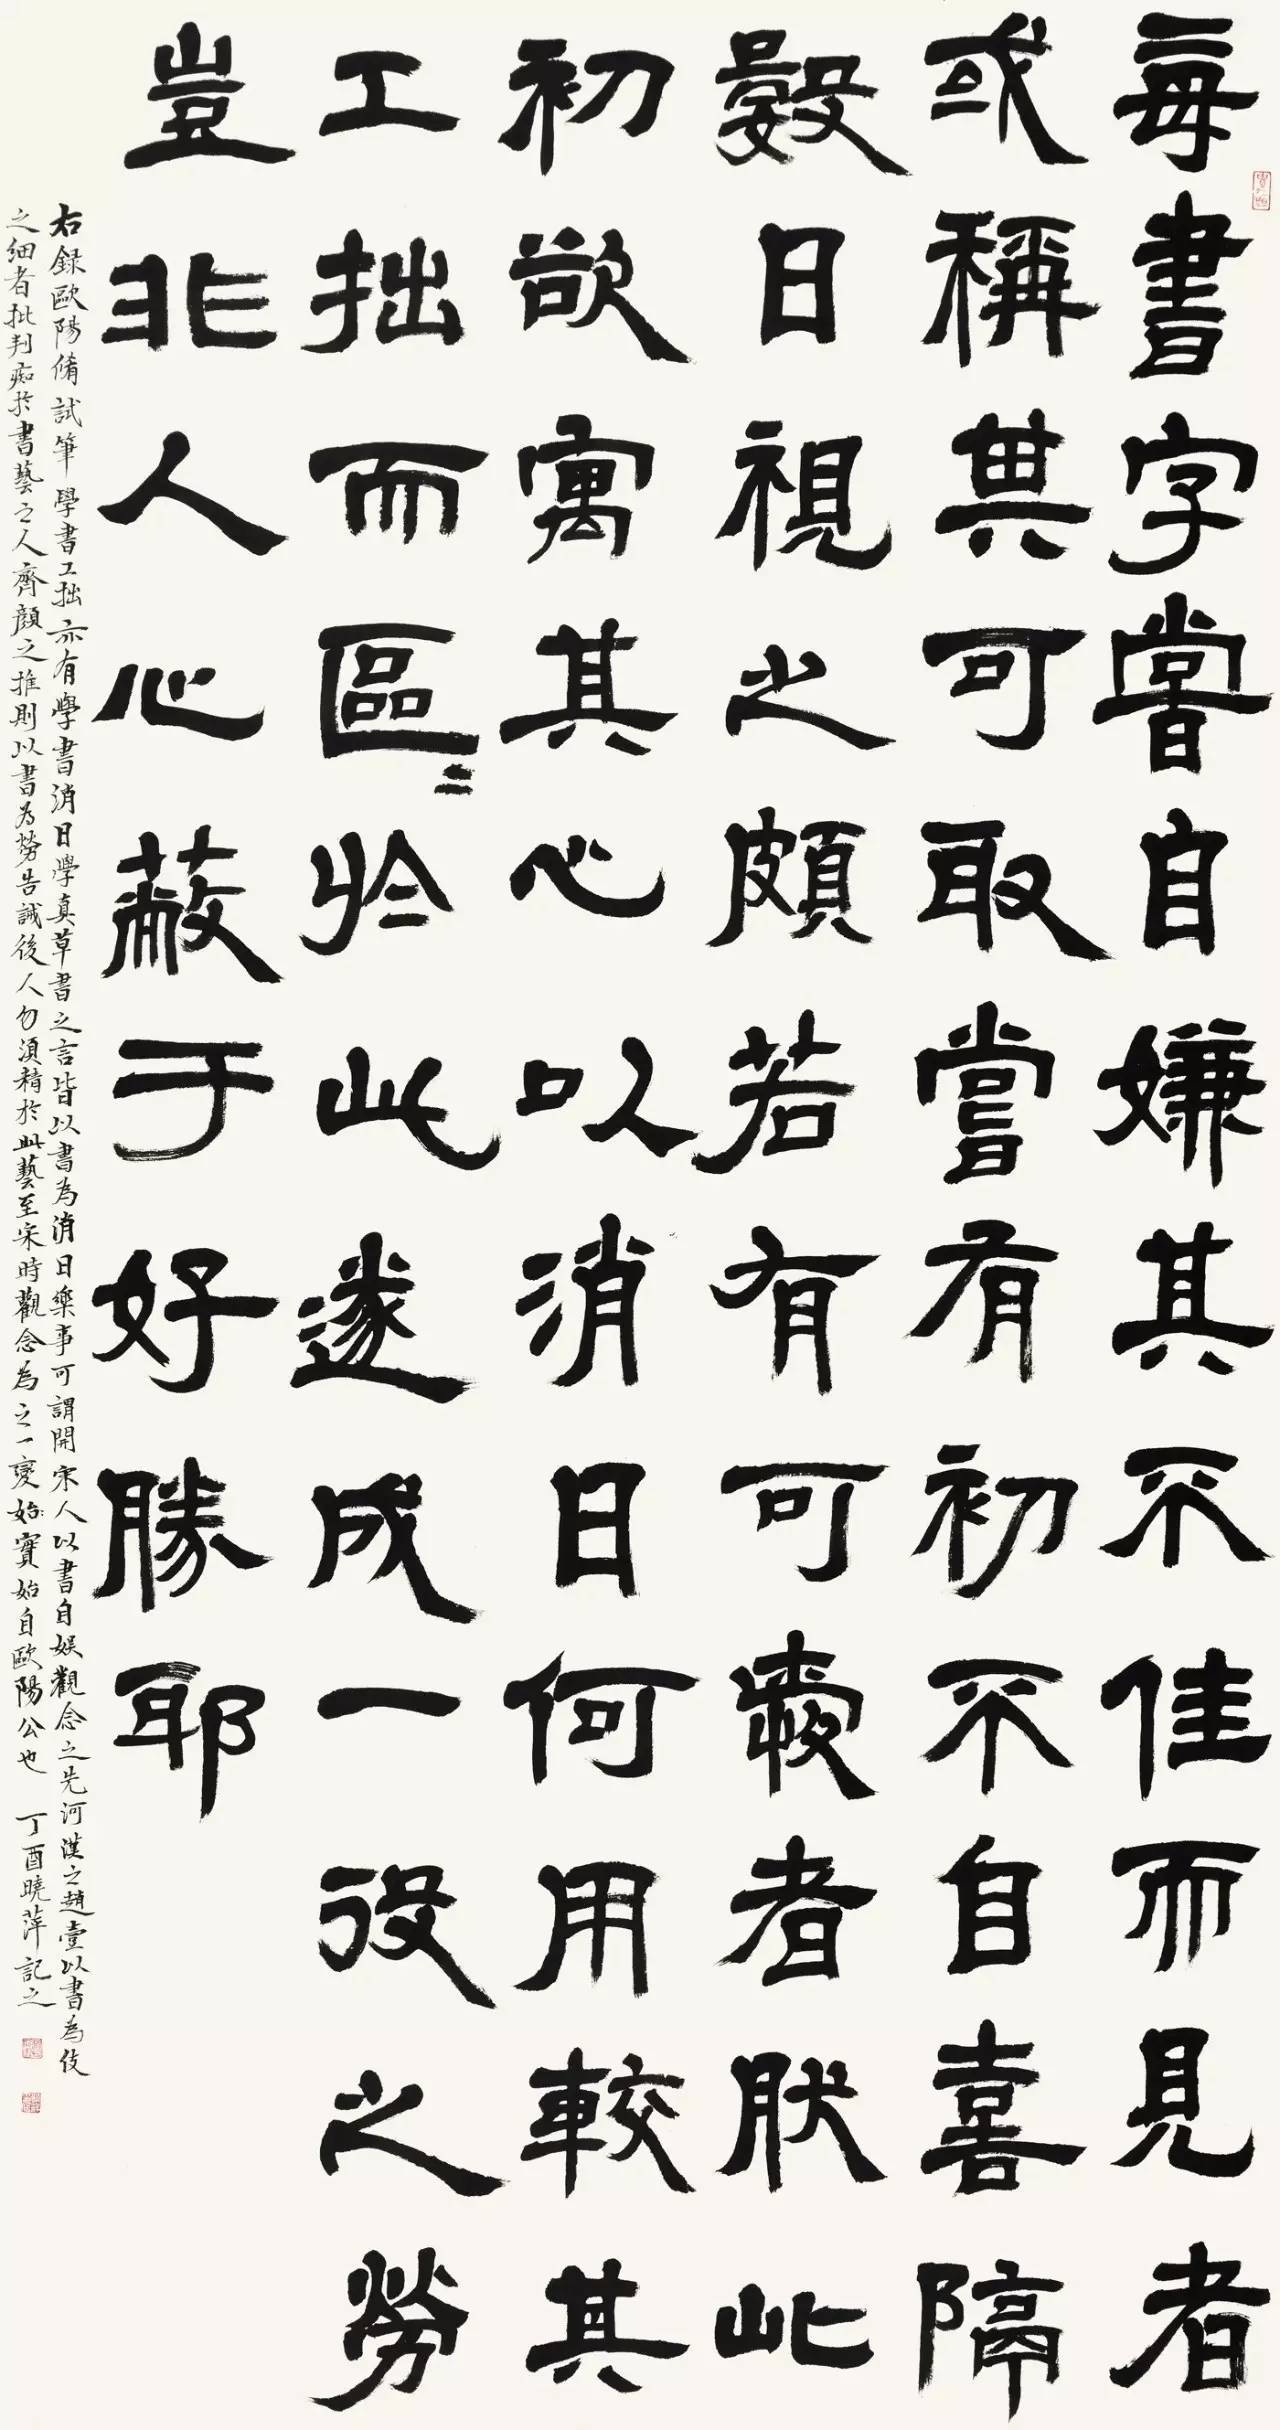 每書字嘗自嫌其不佳而見者
或稱其可取嘗有初不自喜隔
數日視之頗若有可愛者然此
初欲寓其心以消日何用較其
工拙而區〻於此遂成一役之勞
豈非人心蔽于好勝耶
右録歐陽脩試筆學書工拙亦有學書消日學真草書之言皆以書為消日樂事可謂開宋人以書自娱觀念之先河漢之趙壹以書為伎
之細者批判痴於書藝之人齊顔之推則以書為勞告誡後人勿須精於此藝至宋時觀念為之一變始實始自歐陽公也 丁酉曉萍記之